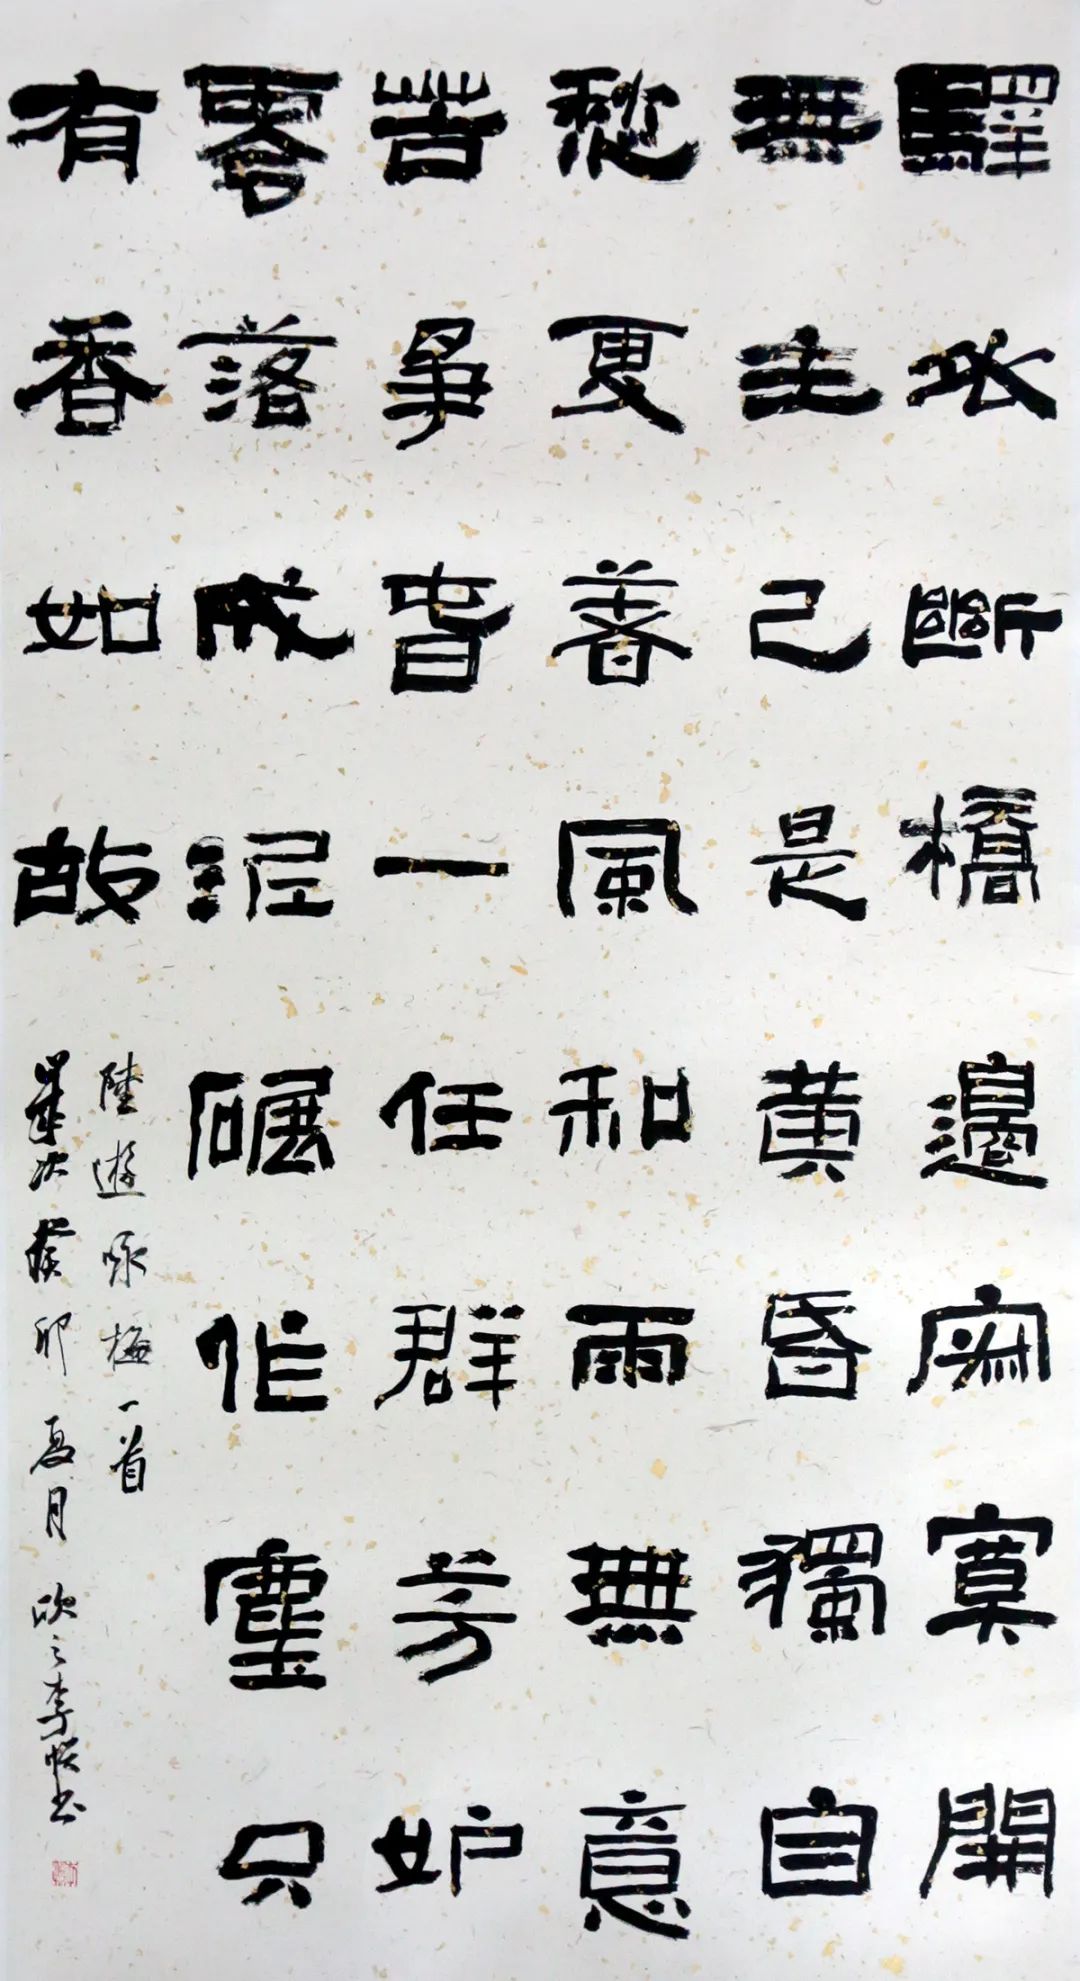 驛外斷橋邊寂寞開
無主已是黃昏獨自
愁更著風和雨無意
苦爭春一任群芳妒
零落成泥碾作塵只
有香如故
陸遊咏梅一首
歲次癸卯夏月 之李书